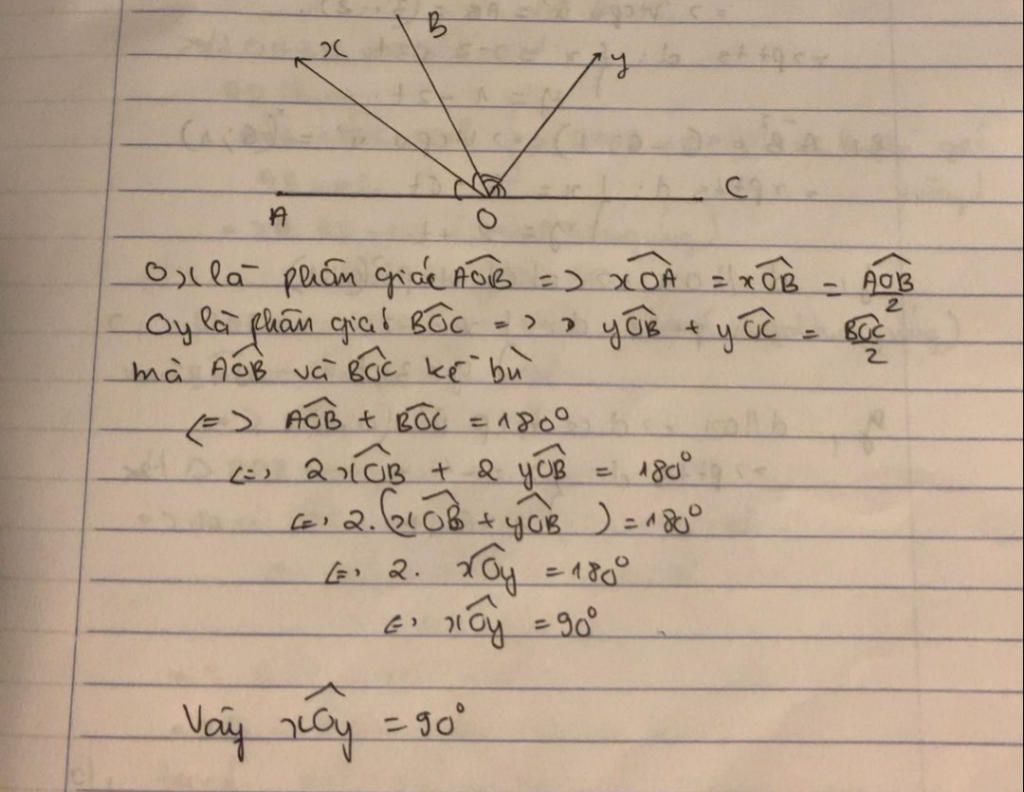 x
B
y
A
O
C
Ox là phân giác AÔB => xÔA = xÔB = AÔB/2
Oy là phân giác BÔC => yÔB + yÔC = BÔC/2
mà AÔB và BÔC kề bù
<=> AÔB + BÔC = 180°
<=> 2 xÔB + 2 yÔB = 180°
<=> 2.(xÔB + yÔB) = 180°
<=> 2. xÔy = 180°
<=> xÔy = 90°
Vậy xÔy = 90°